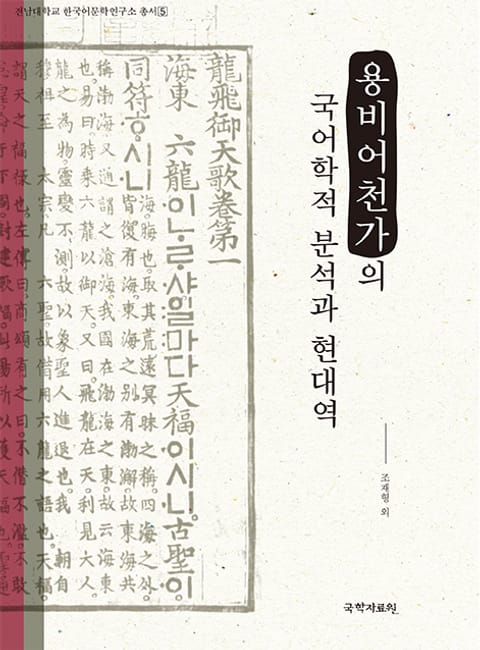 전남대학교 한국어문학연구소 총서 5
용비어천가의
국어학적 분석과 현대역
조재형 외
국학자료원
龍飛御天歌卷第一
海東 六龍이ᄂᆞᄅᆞ샤일마다天福이시니。古聖이。
同符ᄒᆞ시니
海。晦也。取其荒遠冥昧之稱。四海之外。
皆復有海。東海之別有渤澥。故東海共
稱渤海。又通謂之滄海。我國在渤海之東。故云海東
也。易曰時乘六龍以御天。又曰。飛龍在天。利見大人。
龍之為物。靈變不測。故以象聖人進退也。我 朝自
穆祖至 太宗。凡 六聖。故借用六龍之語也。天